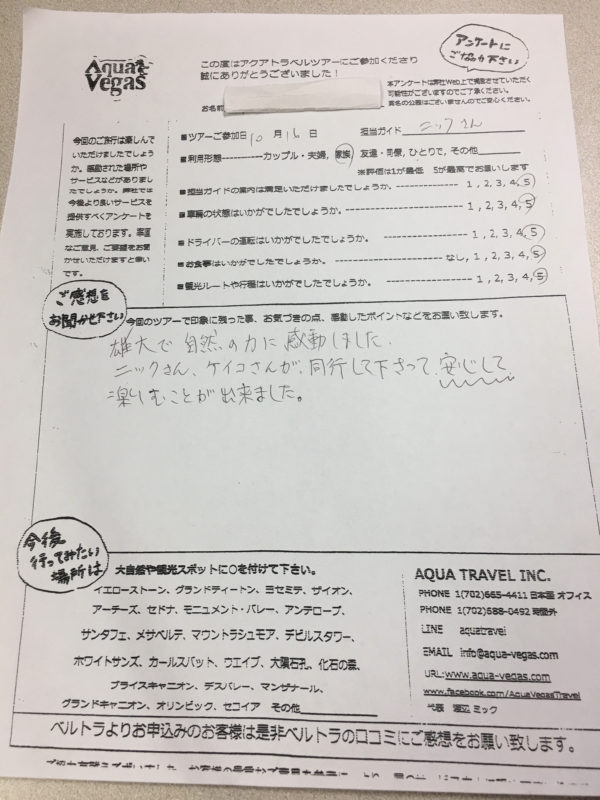 Aqua Vegas
この度はアクアトラベルツアーにご参加くださり
誠にありがとうございました！
アンケートに
ご協力下さい
本アンケートは弊社Web上で掲載させていただく
可能性がございますのでご了承ください。
実名の公開はございませんのでご安心ください。
お名前
今回のご旅行は楽しんで
いただけましたでしょう
か。感動された場所や
サービスなどがありまし
たでしょうか。弊社では
今後より良いサービスを
提供すべくアンケートを
実施しております。率直
なご意見、ご要望をお聞
かせいただけますと幸い
です。
■ツアーご参加日 10 月 16 日 担当ガイド ニックさん
■利用形態-----------カップル・夫婦, 家族, 友達・同僚, ひとりで, その他
※評価は1が最低 5が最高でお願いします
■担当ガイドの案内は満足いただけましたでしょうか。---------------- 1, 2, 3, 4, 5
■車輛の状態はいかがでしたでしょうか。---------------------- 1, 2, 3, 4, 5
■ドライバーの運転はいかがでしたでしょうか。 ---------------- 1, 2, 3, 4, 5
■お食事はいかがでしたでしょうか。-------------------- なし, 1, 2, 3, 4, 5
■観光ルートや行程はいかがでしたでしょうか。---------------- 1, 2, 3, 4, 5
ご感想を
お聞かせ下さい
今回のツアーで印象に残った事、お気づきの点、感動したポイントなどをお願い致します。
雄大で自然の力に感動しました。
ニックさん、ケイコさんが、同行して下さって、安心して
楽しむことが出来ました。
今後
行ってみたい
場所は
大自然や観光スポットに○を付けて下さい。
イエローストーン、グランドティートン、ヨセミテ、ザイオン、
アーチーズ、セドナ、モニュメント・バレー、アンテロープ、
サンタフェ、メサベルデ、マウントラシュモア、デビルスタワー、
ホワイトサンズ、カールスバット、ウエイブ、大隕石孔、化石の森、
ブライスキャニオン、デスバレー、マンザナール、
グランドキャニオン、オリンピック、セコイア その他
AQUA TRAVEL INC.
PHONE 1(702)665-4411 日本語 オフィス
PHONE 1(702)688-0492 時間外
LINE aquatravel
EMAIL info@aqua-vegas.com
URL:www.aqua-vegas.com
www.facebook.com/AquaVegasTravel
代表 渡辺 ミック
ベルトラよりお申込みのお客様は是非ベルトラの口コミにご感想をお願い致します。